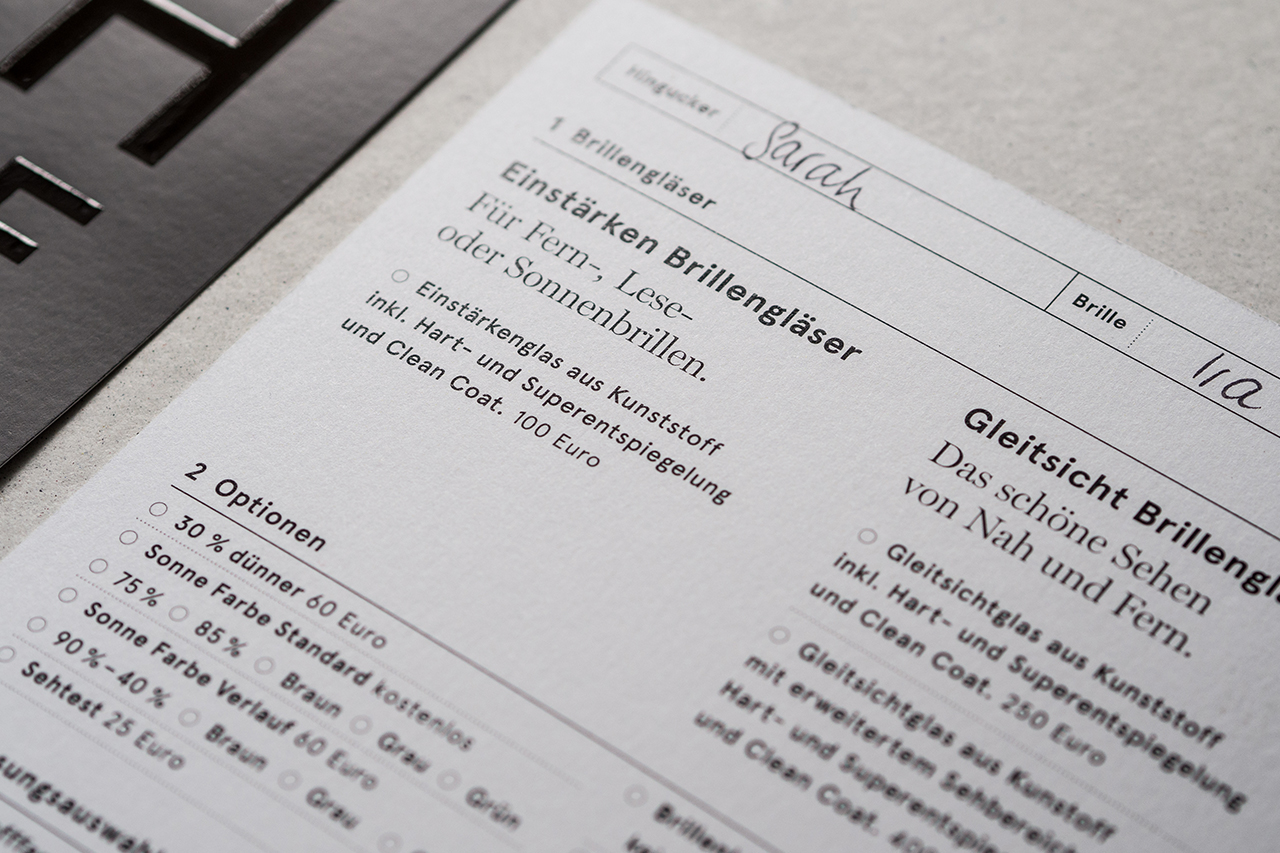 Hingucker Sarah Brille 1/a
1 Brillengläser
Einstärken Brillengläser
Für Fern-, Lese-
oder Sonnenbrillen.
Einstärkenglas aus Kunststoff
inkl. Hart- und Superentspiegelung
und Clean Coat. 100 Euro
Gleitsicht Brillenglä
Das schöne Sehen
von Nah und Fern.
Gleitsichtglas aus Kunststoff
inkl. Hart- und Superentspiegelung
und Clean Coat. 250 Euro
Gleitsichtglas aus Kunstoff
mit erweitertem Sehbereich
Hart- und Superentspie
und Clean Coat. 400
2 Optionen
30 % dünner 60 Euro
Sonne Farbe Standard kostenlos
75 % 85 % Braun Grau Grün
Sonne Farbe Verlauf 60 Euro
90 % – 40 % Braun Grau
Sehtest 25 Euro
sungsauswahl
Brillen